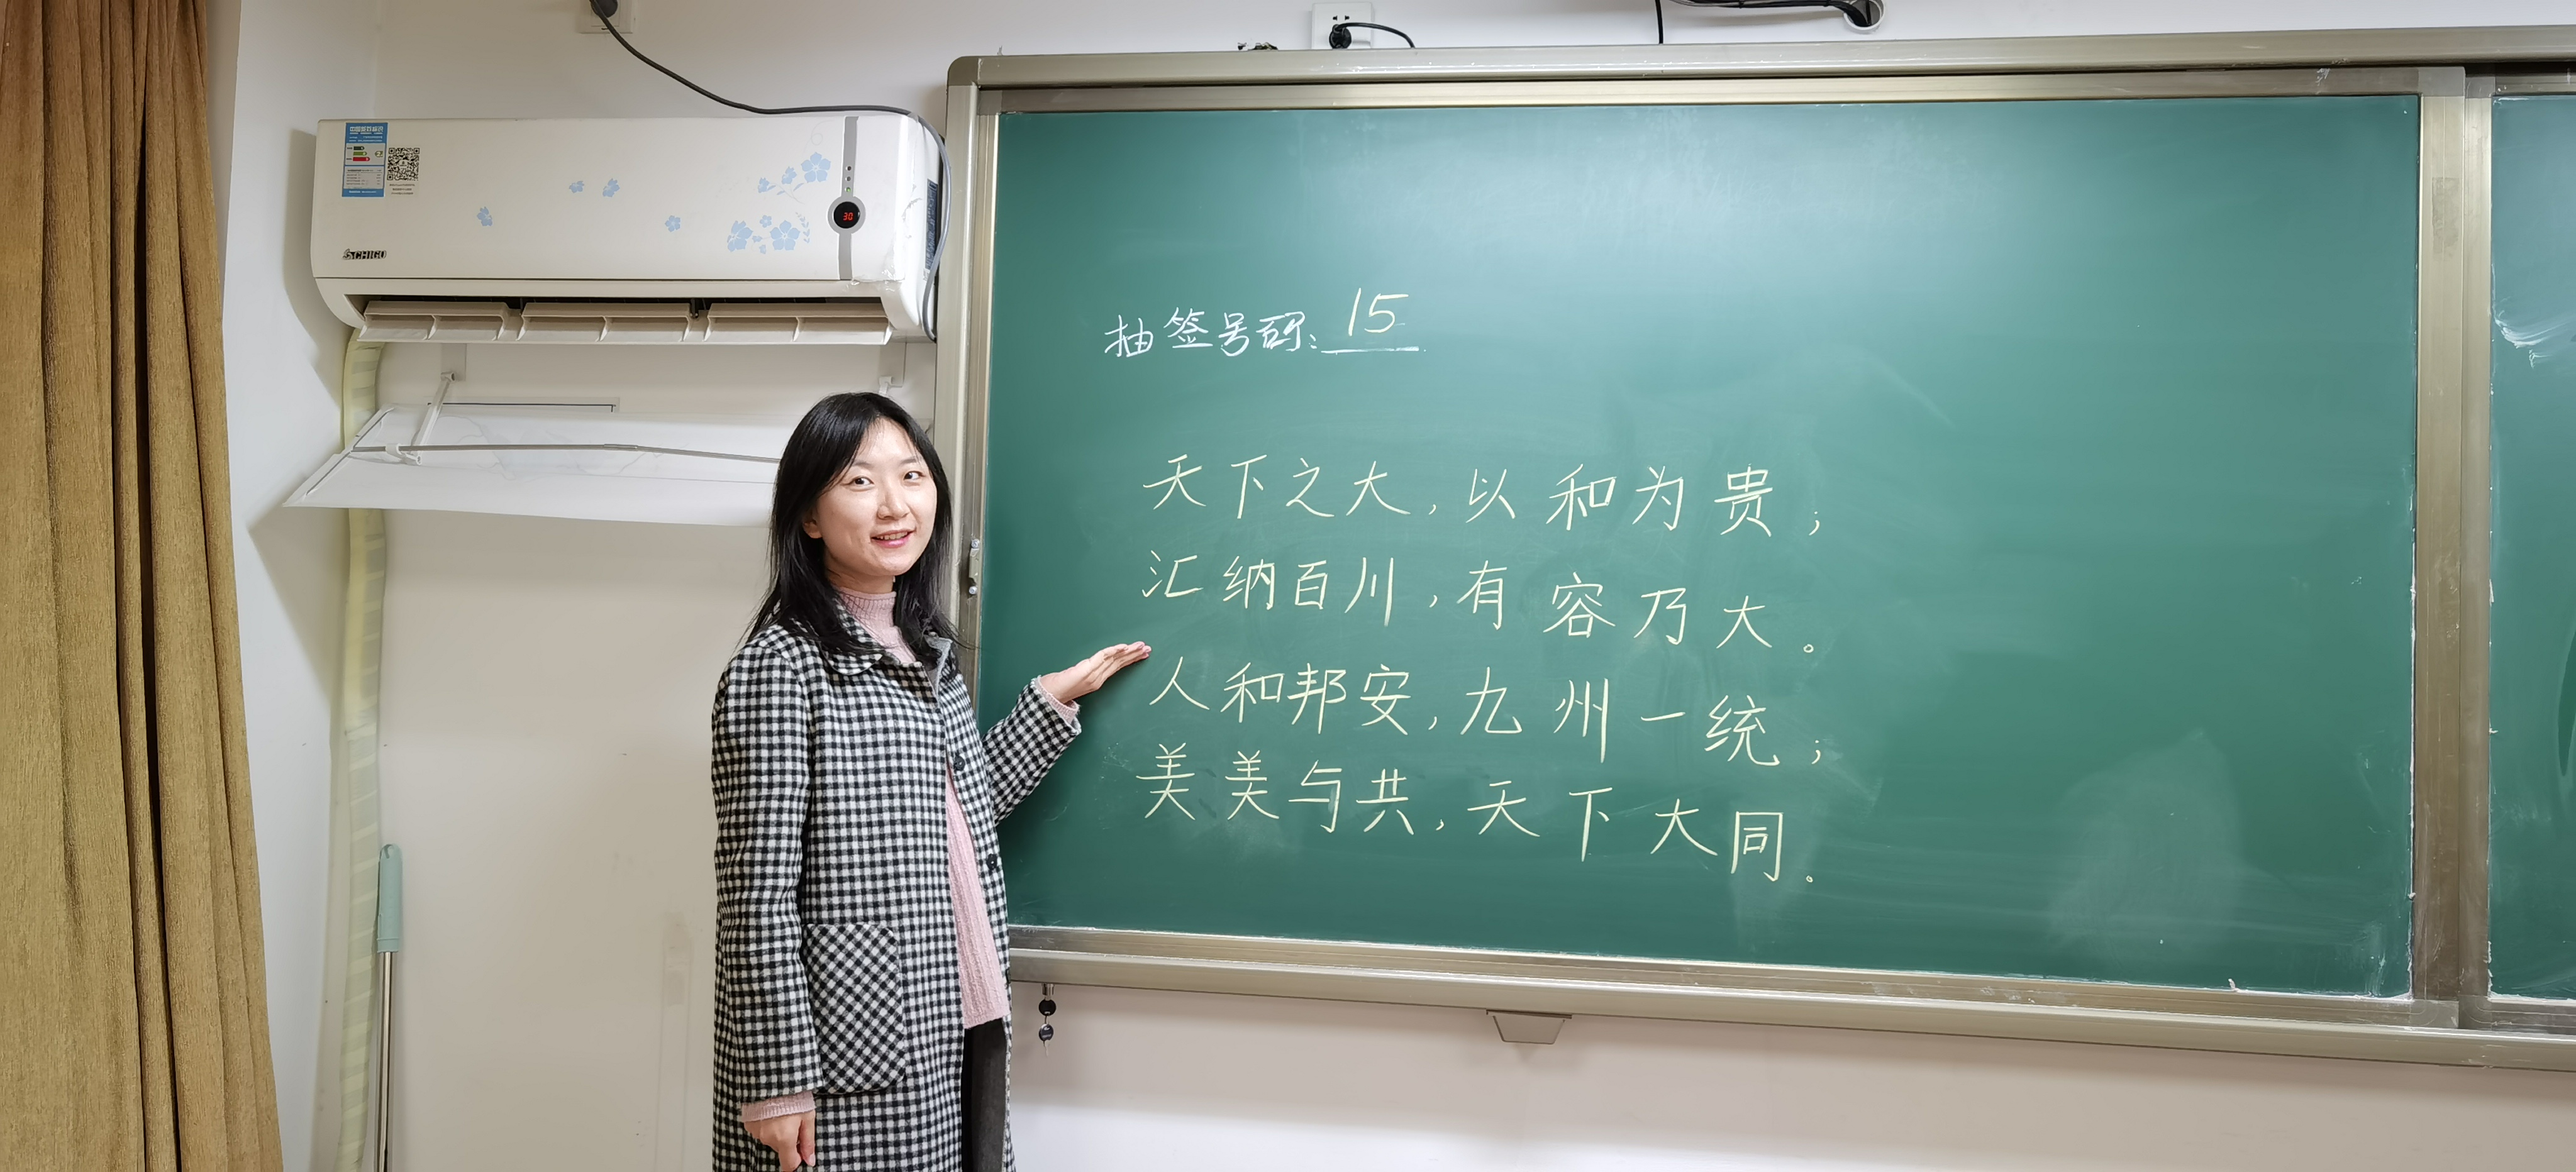 中国能效标识
CHIGO
30
抽签号码:15
天下之大,以和为贵;
汇纳百川,有容乃大。
人和邦安,九州一统;
美美与共,天下大同。